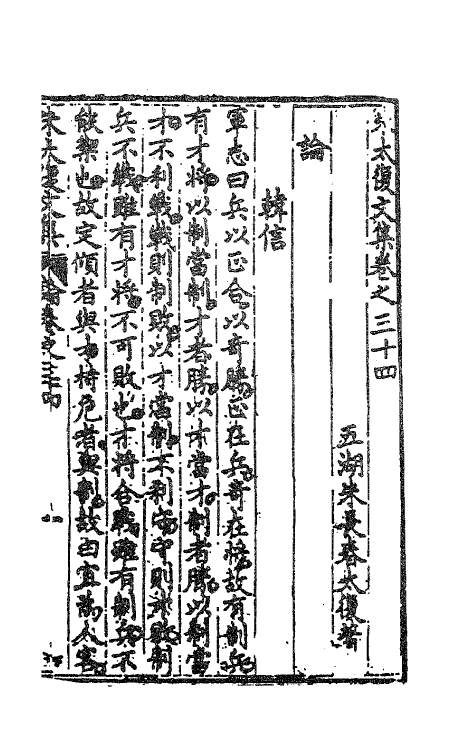 朱太復文集卷之三十四
五湖朱長春太復著
論
韓信
軍志曰兵以正合以奇勝正在兵奇在將故有制兵
有才將以制當制才者勝以才當才制者勝以制當
才不利戰戰則制敗以才當制不利守守則才敗制
兵不戰雖有才將不可敗也才將合戰雖有制兵不
能禦也故定傾者與才持危者與制故曰宜為人客
朱太復文集 論卷之三十四